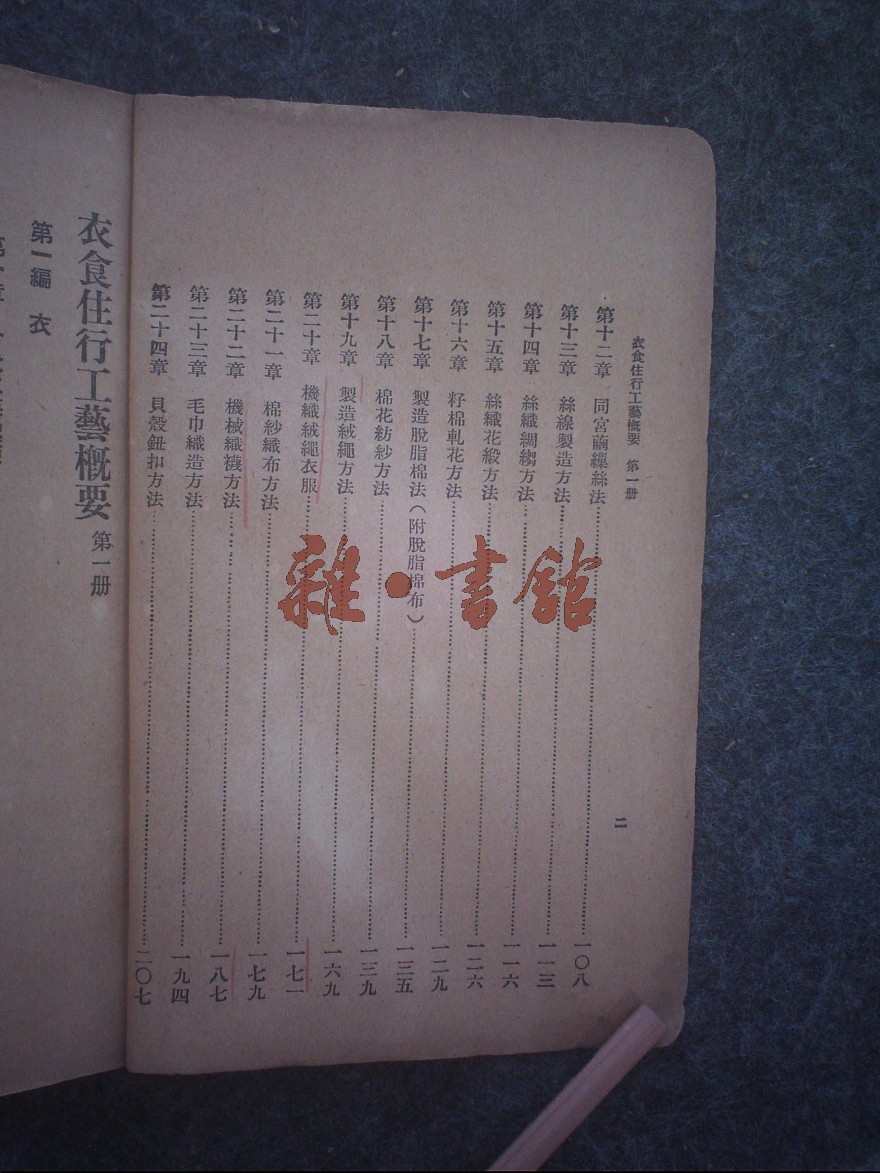 衣食住行工藝概要　第一册
二
第十二章　同宮繭繅絲法……一〇八
第十三章　絲線製造方法……一一三
第十四章　絲織綢縐方法……一一六
第十五章　絲織花緞方法……一二六
第十六章　籽棉軋花方法……一二九
第十七章　製造脫脂棉法（附脫脂棉布）……一三五
第十八章　棉花紡紗方法……一三九
第十九章　製造絨繩方法……一六九
第二十章　機織絨繩衣服……一七一
第二十一章　棉紗織布方法……一七九
第二十二章　機械織襪方法……一八七
第二十三章　毛巾織造方法……一九四
第二十四章　貝殼鈕扣方法……二〇七
衣食住行工藝概要　第一册
第一編　衣
雜·書館